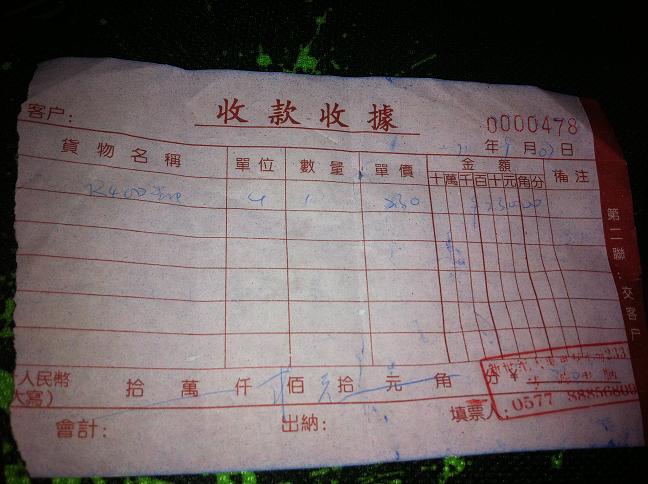 收款收據
客户:
0000478
年9月07日
貨物名稱 單位 數量 單價 金額 備注
十萬千百十元角分
K400 1 230 23000
第二聯:交客户
(人民幣大寫) 拾 萬 仟 佰 拾 元 角 分 ¥
會計: 出納: 填票人:
0577 88856809